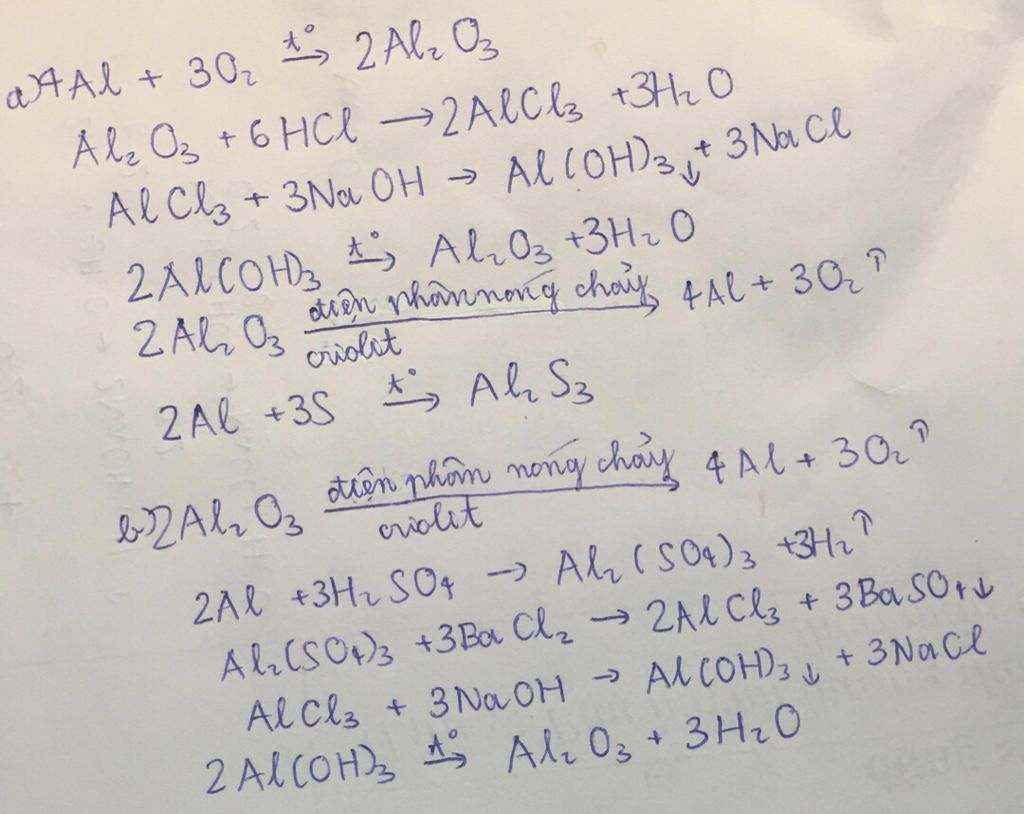 a) 4Al + 3O₂ →(t°) 2Al₂O₃
Al₂O₃ + 6HCl → 2AlCl₃ + 3H₂O
AlCl₃ + 3NaOH → Al(OH)₃↓ + 3NaCl
2Al(OH)₃ →(t°) Al₂O₃ + 3H₂O
2Al₂O₃ →(điện phân nóng chảy / criolit) 4Al + 3O₂↑
2Al + 3S →(t°) Al₂S₃
b) 2Al₂O₃ →(điện phân nóng chảy / criolit) 4Al + 3O₂↑
2Al + 3H₂SO₄ → Al₂(SO₄)₃ + 3H₂↑
Al₂(SO₄)₃ + 3BaCl₂ → 2AlCl₃ + 3BaSO₄↓
AlCl₃ + 3NaOH → Al(OH)₃↓ + 3NaCl
2Al(OH)₃ →(t°) Al₂O₃ + 3H₂O